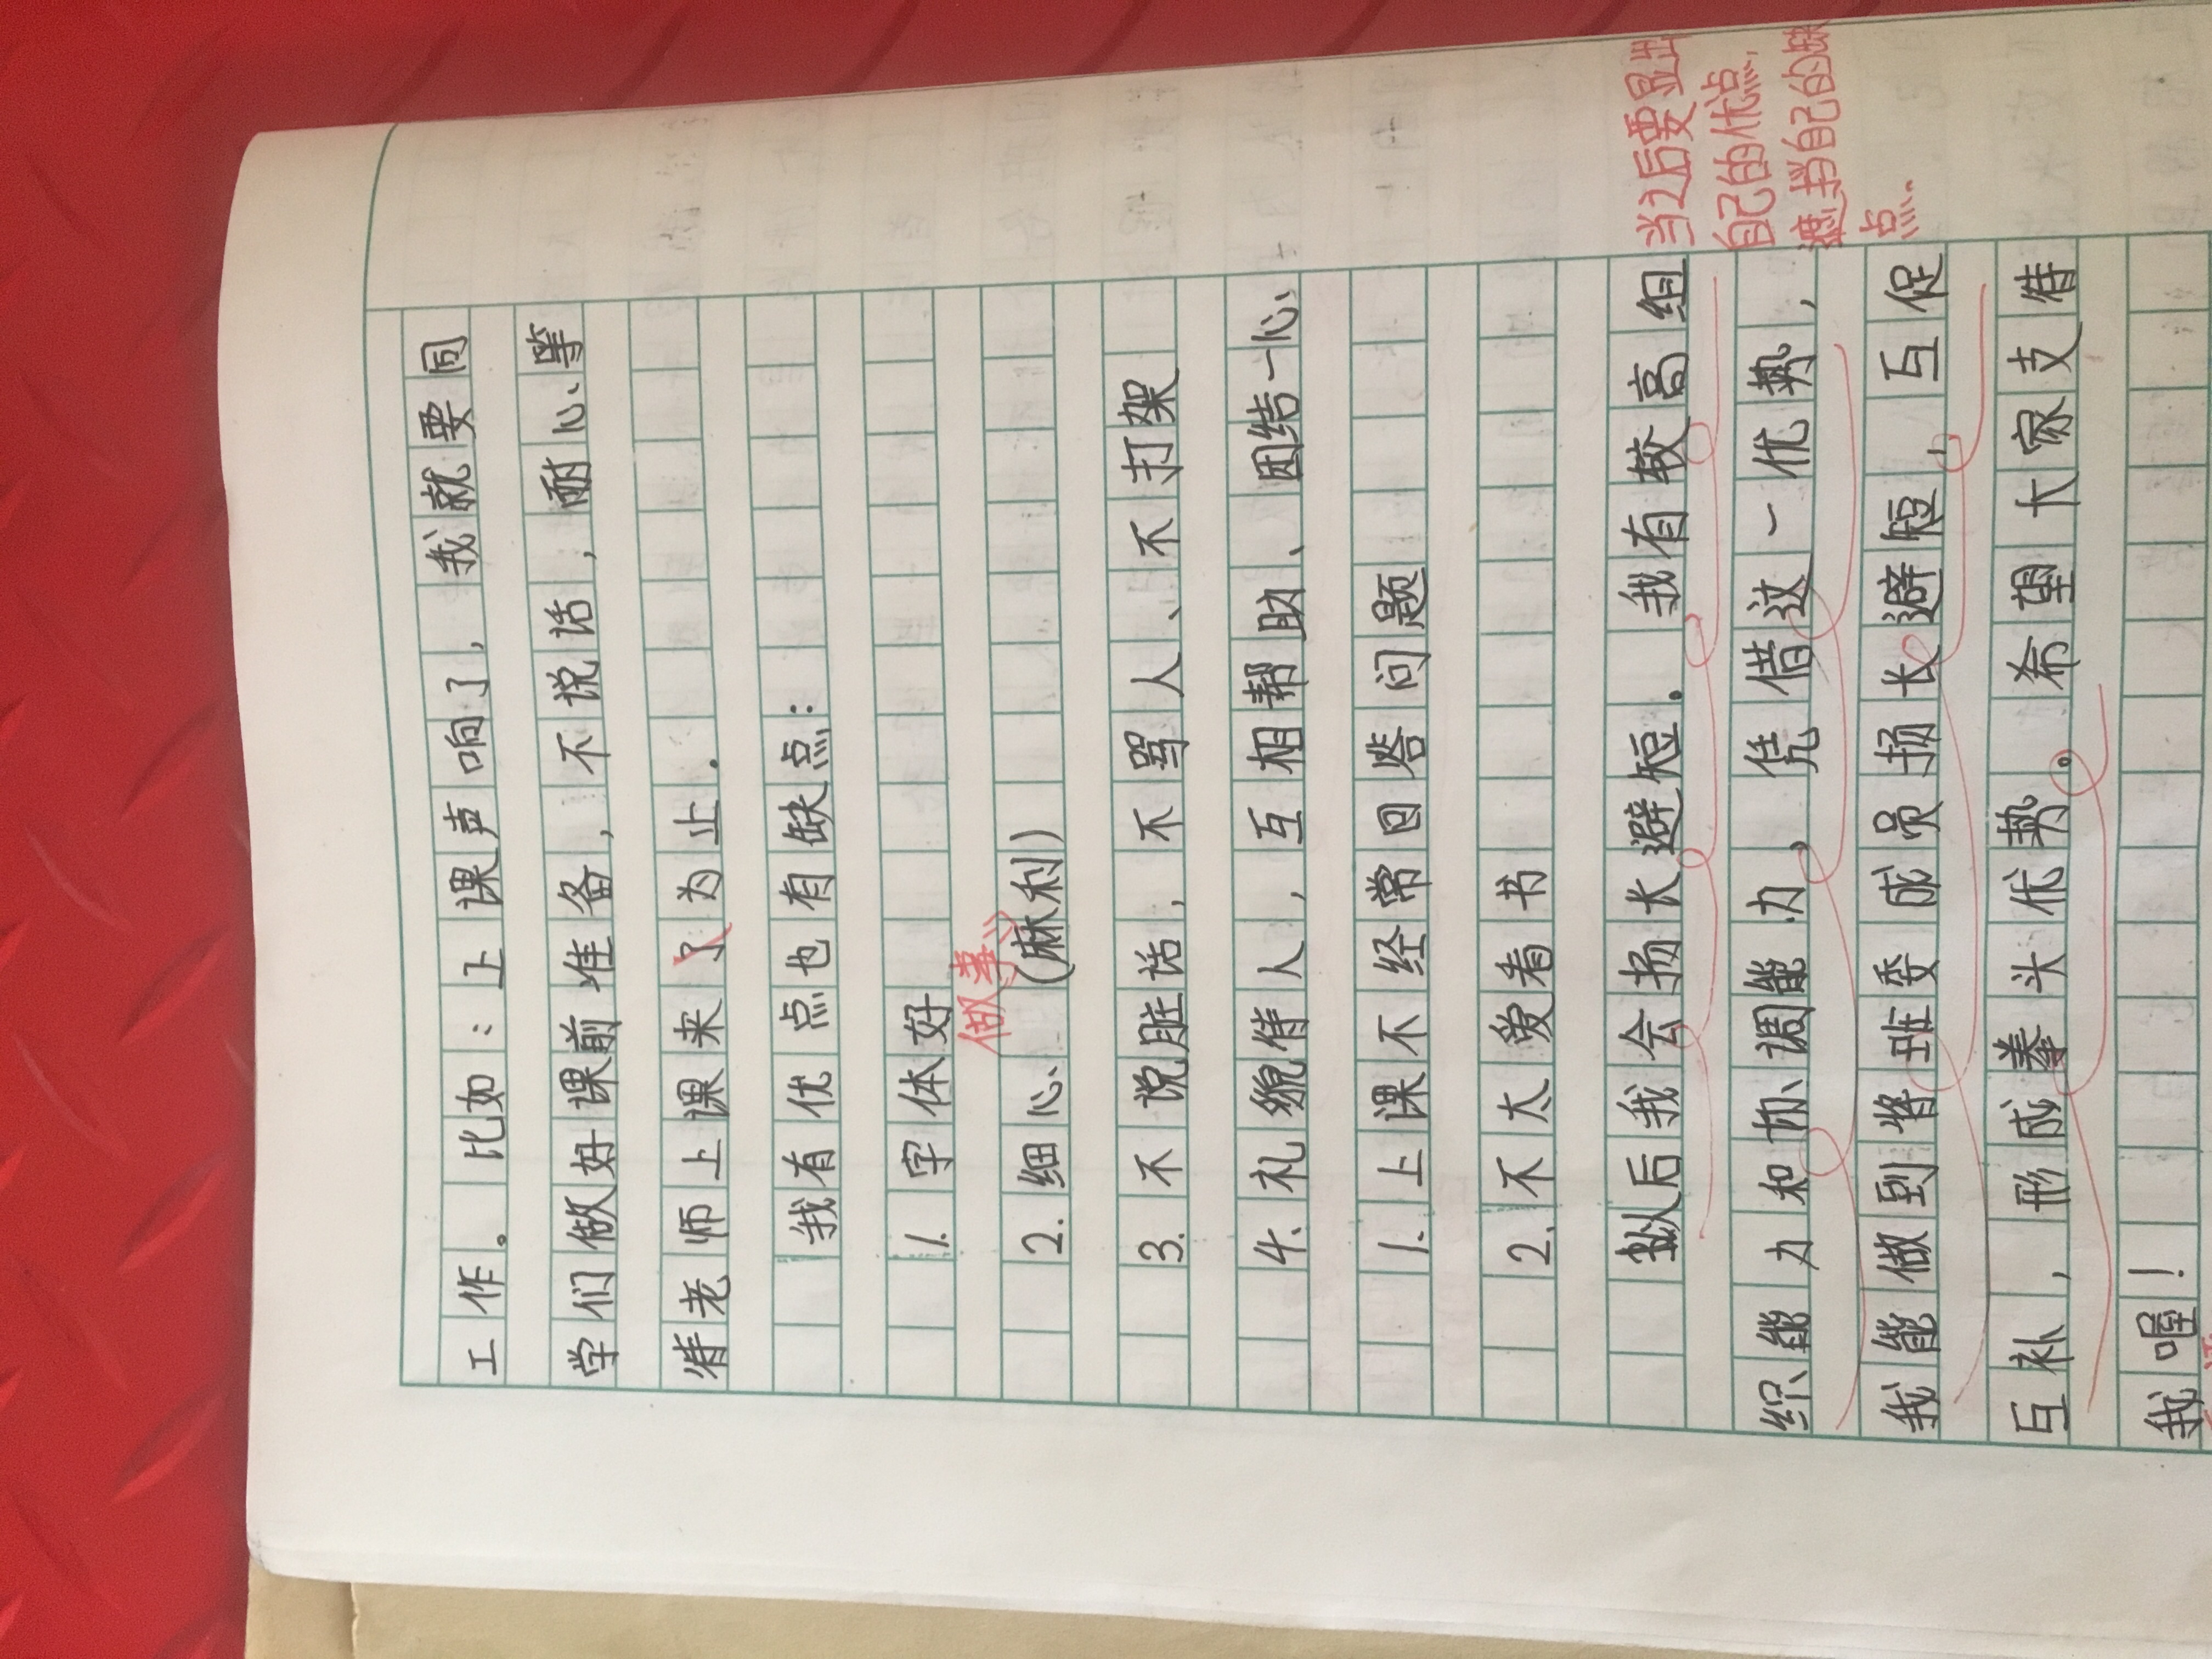 工作。比如:上课声响了,我就要同
学们做好课前准备,不说话,耐心等
待老师上课来了为止.
我有优点也有缺点:
1.字体好
做事
2.细心(麻利)
3.不说脏话,不骂人、不打架
4.礼貌待人,互相帮助、团结一心
1.上课不经常回答问题
2.不太爱看书
从后我会扬长避短.我有较高组
织能力和协调能力,凭借这一优势,
我能做到将班委成员扬长避短,互促
互补,形成拳头优势。希望大家支待
我喔!
当上后要显出
自己的优点,
遮挡自己的缺
点.